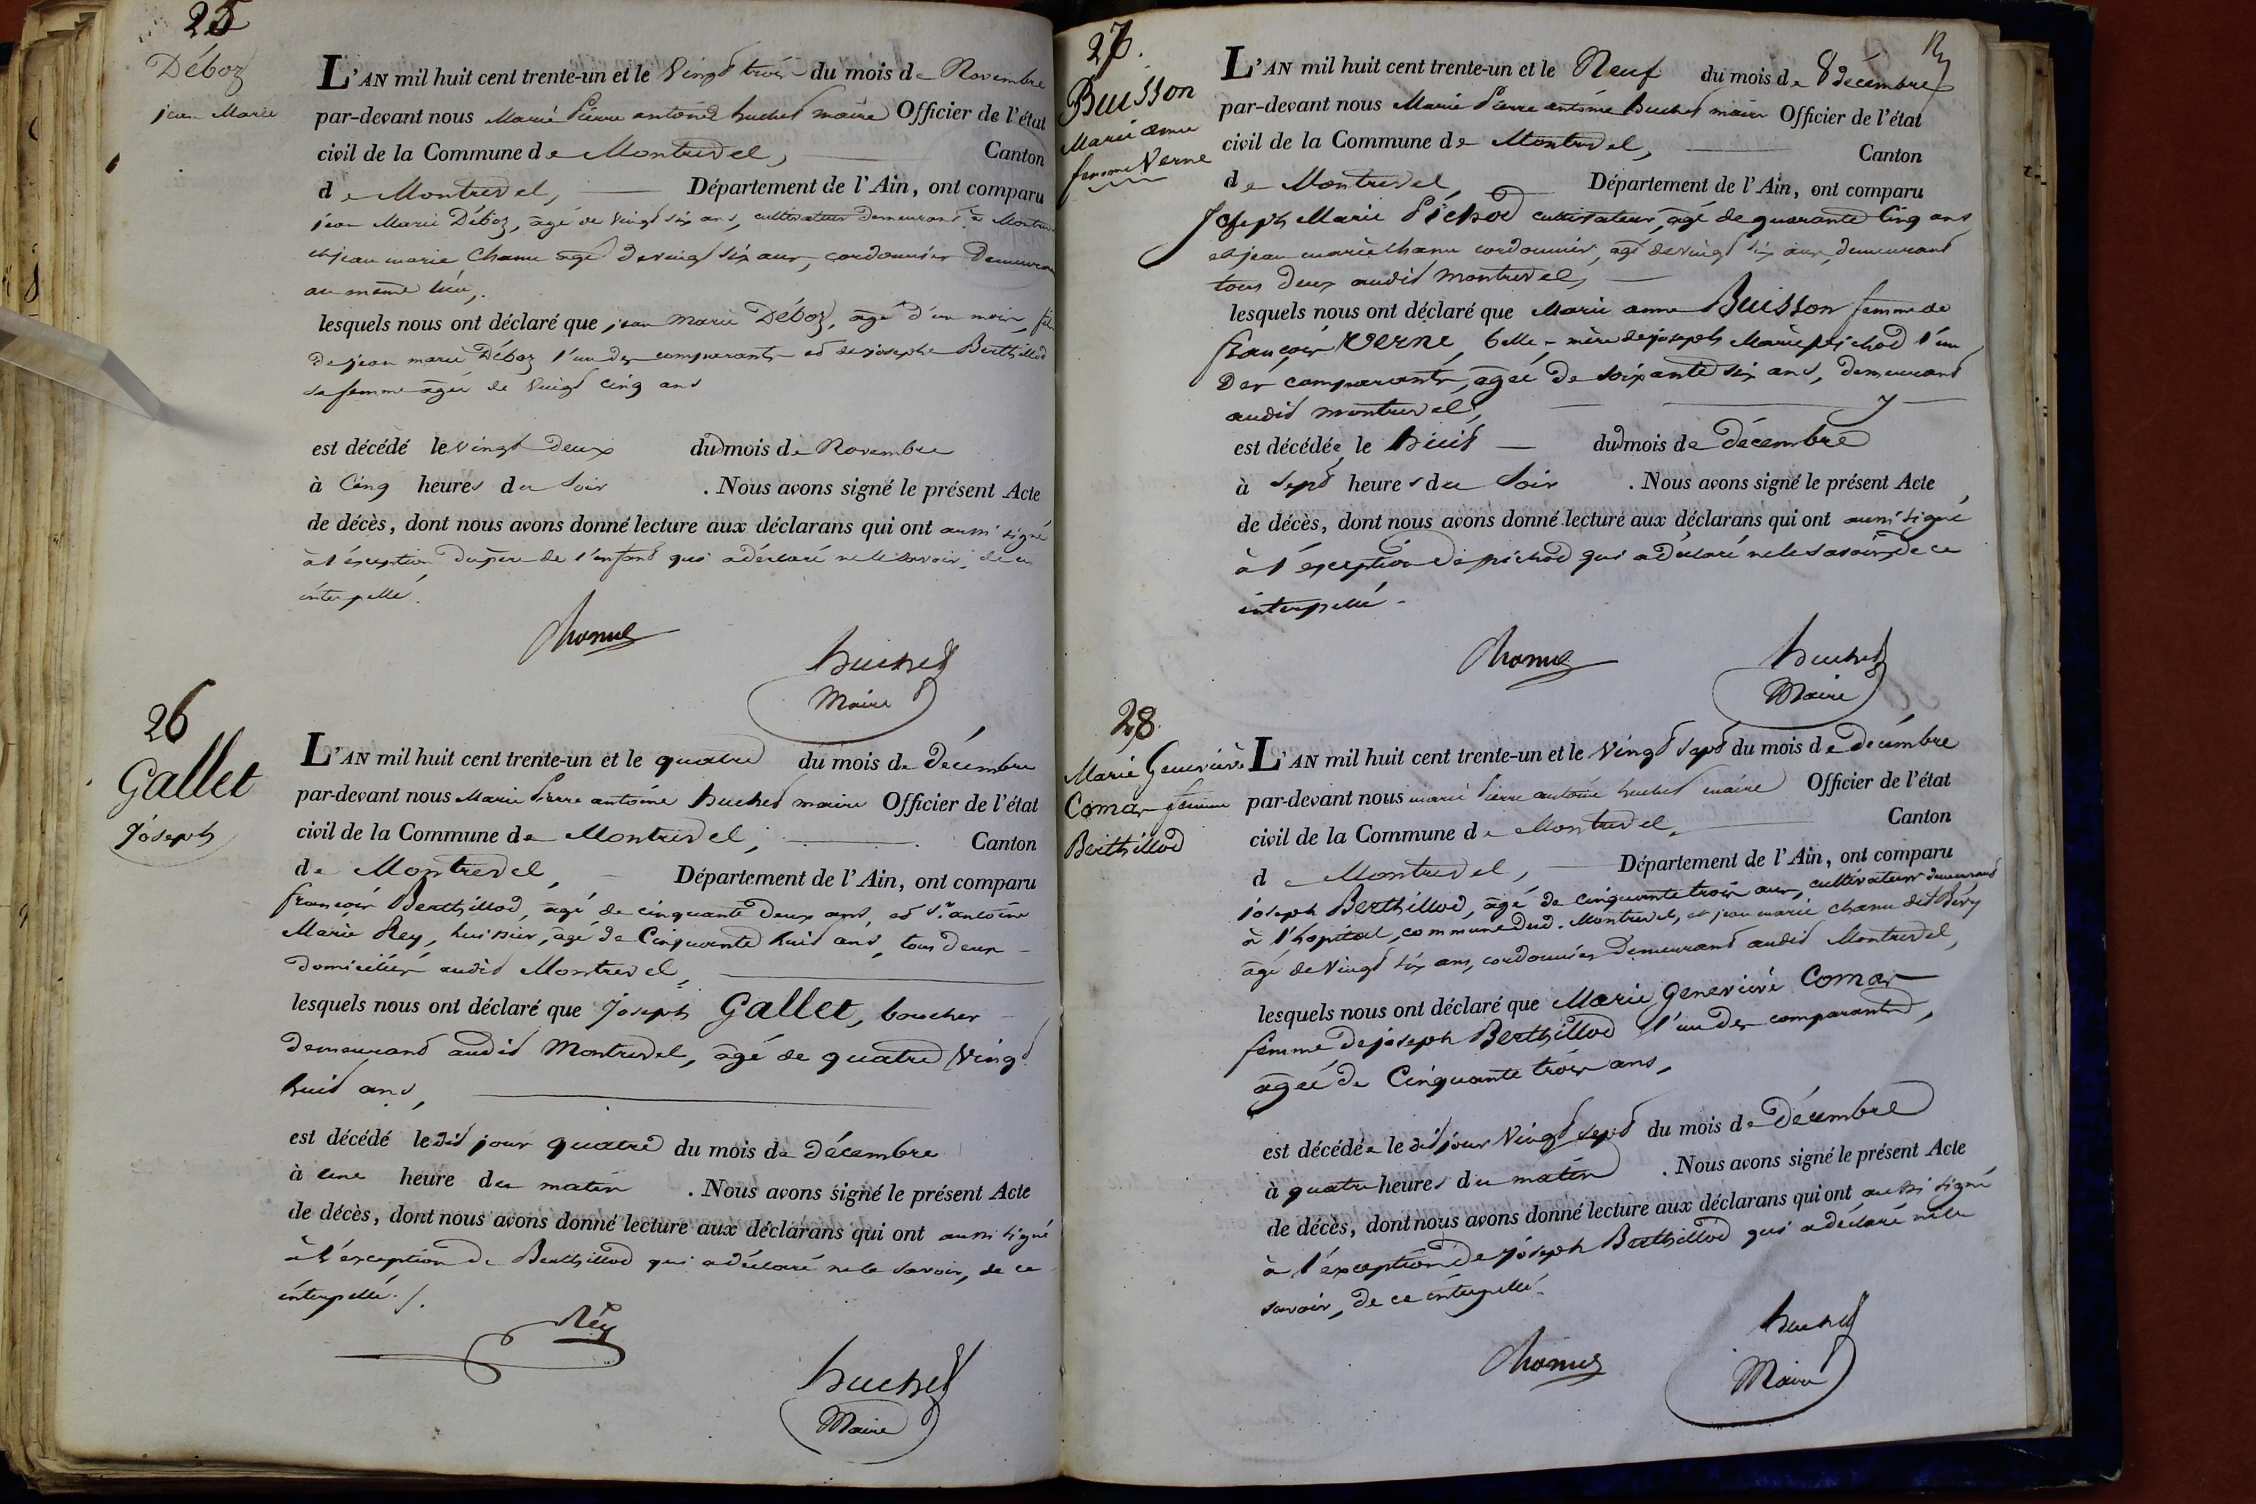 25
Déboz
jean Marie
L'AN mil huit cent trente-un et le Vingt trois du mois de Novembre
par-devant nous Marie Pierre antoine huchet maire Officier de l'état
civil de la Commune de Montrevel, Canton
de Montrevel, Département de l'Ain, ont comparu
jean Marie Déboz, agé de vingt six ans, cultivateur demeurant à
et jean marie Chanu agé de vingt six ans, cordonnier
au même lieu,
lesquels nous ont déclaré que jean marie Déboz, agé d'un mois, fils
de jean marie Déboz l'un des comparants et de josephe Berthillod
sa femme agée de vingt cinq ans
est décédé le vingt deux dud mois de Novembre
à Cinq heures du Soir . Nous avons signé le présent Acte
de décès, dont nous avons donné lecture aux déclarans qui ont aussi signé
à l'éxception du père de l'enfant qui a déclaré ne le savoir, de ce
interpellé.
Chanu
huchet
Maire
26
Gallet
Joseph
L'AN mil huit cent trente-un et le quatre du mois de décembre
par-devant nous Marie Pierre antoine huchet maire Officier de l'état
civil de la Commune de Montrevel, Canton
de Montrevel, Département de l'Ain, ont comparu
françois Berthillod, agé de cinquante deux ans, et Sr. antoine
Marie Rey, huissier, agé de Cinquante huit ans, tous deux
domiciliés audit Montrevel,
lesquels nous ont déclaré que Joseph Gallet, boucher
demeurant audit Montrevel, agé de quatre Vingt
huit ans,
est décédé le dit jour quatre du mois de décembre
à une heure du matin . Nous avons signé le présent Acte
de décès, dont nous avons donné lecture aux déclarans qui ont aussi signé
à l'éxception de Berthillod qui a déclaré ne le savoir, de ce
interpellé./.
Rey
huchet
Maire
27.
Buisson
Marie anne
femme Verne
L'AN mil huit cent trente-un et le Neuf du mois de décembre
par-devant nous Marie Pierre antoine huchet maire Officier de l'état
civil de la Commune de Montrevel, Canton
de Montrevel, Département de l'Ain, ont comparu
Joseph Marie Pichod cultivateur, agé de quarante Cinq ans
et jean marie Chanu cordonnier, agé de vingt six ans, demeurant
tous deux audit Montrevel,
lesquels nous ont déclaré que Marie anne Buisson femme de
françois Verne, belle-mère de joseph Marie pichod l'un
des comparants, agée de soixante six ans, demeurant
audit montrevel,
est décédée le huit dud mois de décembre
à Sept heures du Soir . Nous avons signé le présent Acte
de décès, dont nous avons donné lecture aux déclarans qui ont aussi signé
à l'éxception de pichod qui a déclaré ne le savoir de ce
interpellé.
Chanu
huchet
Maire
28.
Marie Genevieve
Comar femme
Berthillod
L'AN mil huit cent trente-un et le Vingt sept du mois de décembre
par-devant nous marie Pierre antoine huchet maire Officier de l'état
civil de la Commune de Montrevel, Canton
de Montrevel, Département de l'Ain, ont comparu
joseph Berthillod, agé de cinquante trois ans, cultivateur demeurant
à l'hopital, commune dud. Montrevel, et jean marie Chanu
agé de Vingt six ans, cordonnier demeurant audit Montrevel,
lesquels nous ont déclaré que Marie Genevieve Comar
femme de joseph Berthillod l'un des comparants,
agée de Cinquante trois ans,
est décédée le dit jour Vingt sept du mois de décembre
à quatre heures du matin . Nous avons signé le présent Acte
de décès, dont nous avons donné lecture aux déclarans qui ont aussi signé
à l'éxception de joseph Berthillod qui a déclaré ne le
savoir, de ce interpellé.
Chanu
huchet
Maire